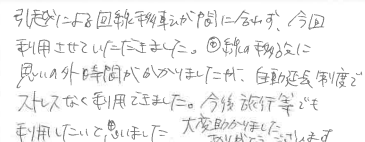 引越による回線移転が間に合わず、今回
利用させていただきました。回線の移設に
思いの外時間がかかりましたが、自動延長制度で
ストレスなく利用できました。今後旅行等でも
利用したいと思いました 大変助かりました
ありがとうございます